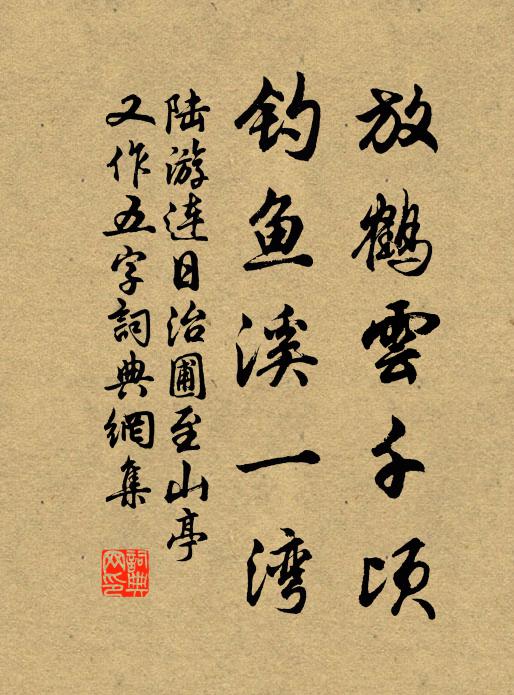 放鹤雲千顷
钓鱼溪一湾
陆游连日治圃至山亭
又作五字詞典網集
詞典
网印